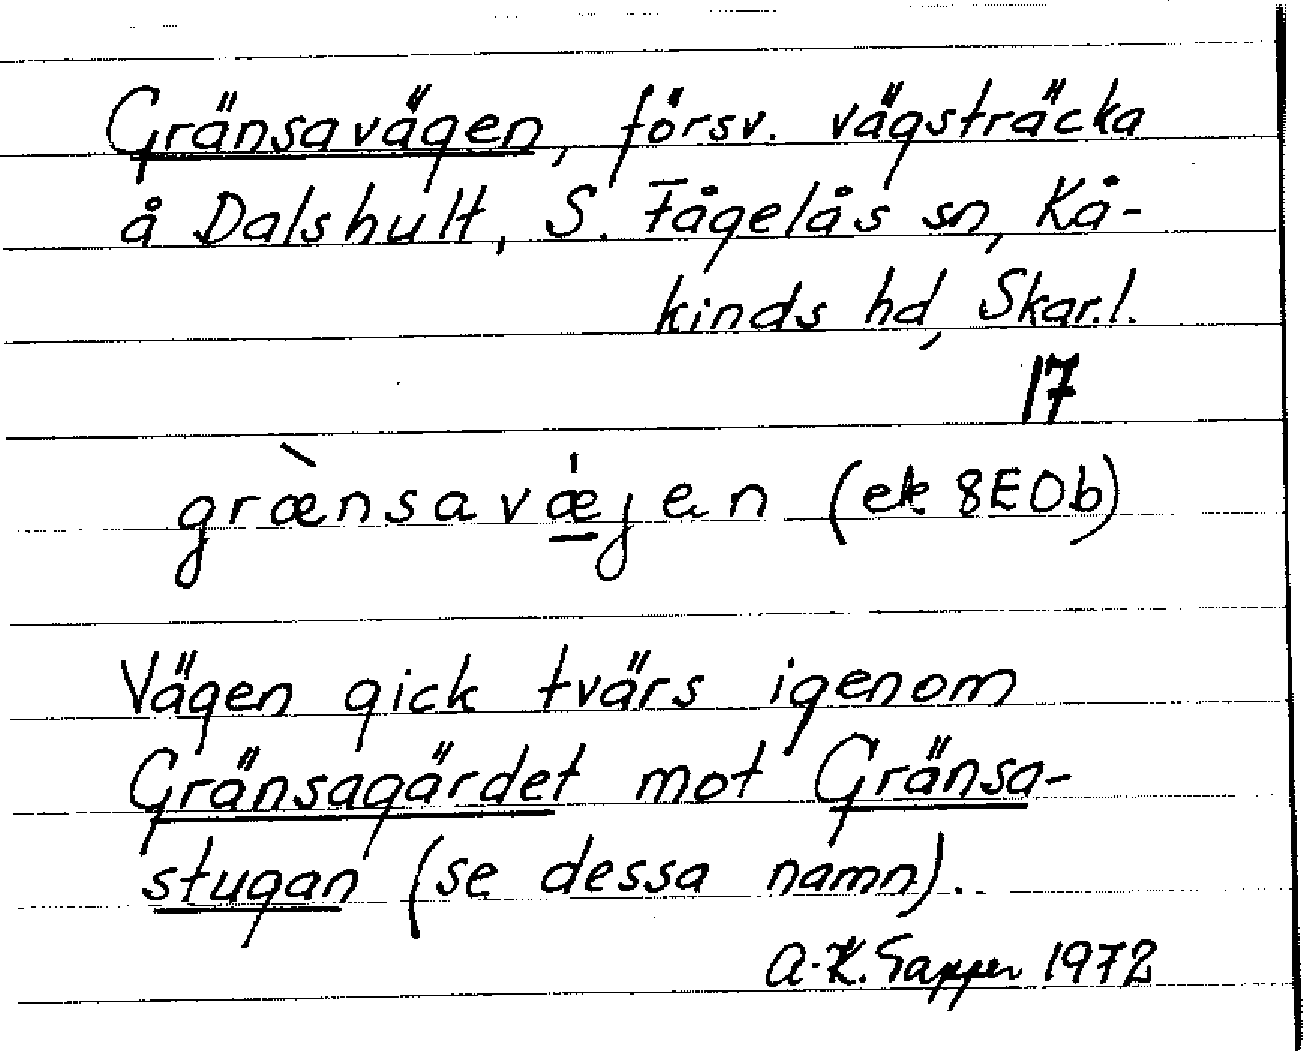 Gränsavägen, försv. vägsträcka
å Dalshult, S. Fågelås sn, Kå-
kinds hd, Skar.l.
17
græ̀nsavæ̍jen (ek 8E0b)
Vägen gick tvärs igenom
Gränsagärdet mot Gränsa-
stugan (se dessa namn).
A-K. Sapper 1972